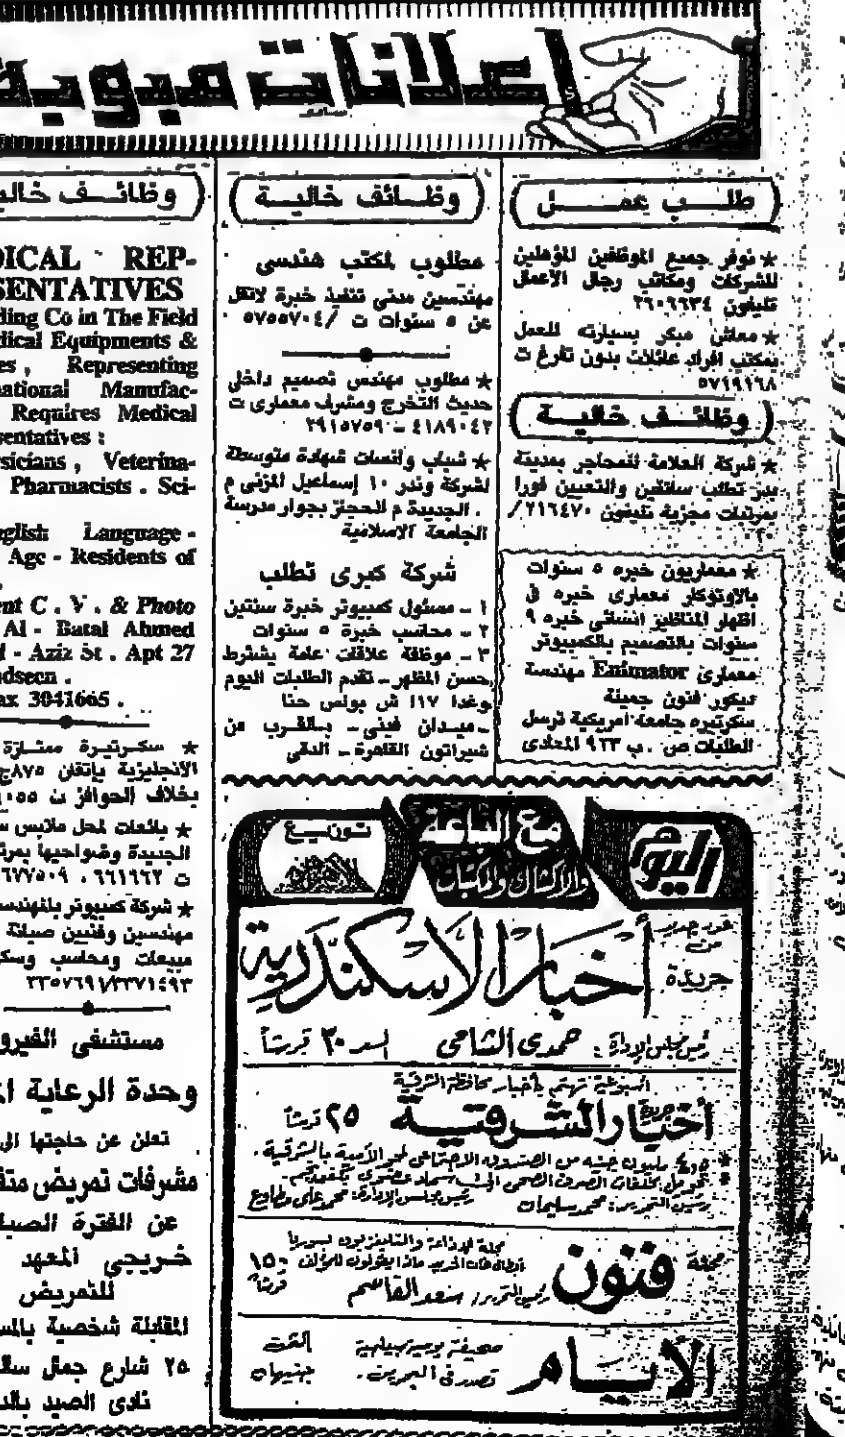 إعلانات مبوبة
طلـــب عمـــــل
★ نوفر جميع الموظفين المؤهلين
للشركات ومكاتب رجال الأعمال
تليفون ٢٦٠٩٦٣٤
★ معاش مبكر بسيارته للعمل
بمكتب افراد عائلات بدون تفرغ ت
٥٧١٩١٦٨
وظائــف خاليــة
★ شركة العلامة للمحاجر بمدينة
بدر تطلب سائقين والتعيين فورا
بمرتبات مجزية تليفون ٢١٦٤٧٠/
★ معماريون خبره ٥ سنوات
بالاوتوكاد معمارى خبره فى
اظهار المناظير انسائى خبره ٩
سنوات بالتصميم بالكمبيوتر
معمارى Enimator مهندسة
ديكور فنون جميلة
سكرتيره جامعه امريكية ترسل
الطلبات ص . ب ٩٢٣ المعادى
وظــائف خاليــة
مطلوب لمكتب هندسى
مهندسين مدنى تنفيذ خبرة لاتقل
عن ٥ سنوات ت /٥٧٥٥٧٠٤
★ مطلوب مهندس تصميم داخلى
حديث التخرج ومشرف معمارى ت
٤١٨٩٠٤٢ – ٢٩١٥٧٥٩
★ شباب وانسات شهادة متوسطة
لشركة وندر ١٠ إسماعيل المزنى م
. الجديدة م الحجاز بجوار مدرسة
الجامعة الاسلامية
شركة كبرى تطلب
١ – مسئول كمبيوتر خبرة سنتين
٢ – محاسب خبرة ٥ سنوات
٣ – موظفة علاقات عامة يشترط
حسن المظهر – تقدم الطلبات اليوم
وغدا ١١٧ ش بولس حنا
– ميدان فينى – بالقرب من
شيراتون القاهرة – الدقى
وظائـــف خالي
DICAL REP-
SENTATIVES
ding Co in The Field
dical Equipments &
es , Representing
national Manufac-
Requires Medical
sentatives :
sicians , Veterina-
Pharmacists . Sci-
nglish Language -
Age - Residents of
ent C . V . & Photo
Al - Batal Ahmed
l - Aziz St . Apt 27
ndseen .
ax 3041665 .
★ سكـرتيـرة ممتـازة
الانجليزية بإتقان ٨٧٥ج
بخلاف الحوافز ت ٠٥٥
★ بائعات لمحل ملابس
الجديدة وضواحيها
ت ٦٦١١٦٦٢ ، ٦٧٧٥٠٩
★ شركة كمبيوتر بالمهندس
مهندسين وفنيين صيانة
مبيعات ومحاسب وسكر
٣٣٥٧٦٩١/٣٣٧١٤٩٣
مستشفى الفيرو
وحدة الرعاية
تعلن عن حاجتها الى
مشرفات تمريض
عن الفترة
خـريجى المعهد
للتمريض
المقابلة شخصية
٢٥ شارع جمال
نادى الصيد
اليوم
مع الباعة
والأكشاك والمكتبات
توزيــع
عدد جديد
من
جريدة
أخبار الاسكندرية
رئيس مجلس الإدارة : حمدى الشامى السعر ٣٠ قرشاً
اسبوعية تهتم بأخبار محافظة الشرقية
جريدة أخبار الشرقيـــة ٢٥ قرشاً
مليون جنيه من الصندوق الاجتماعى لمحو الأمية بالشرقية .
رئيس التحرير : محمد سليمان رئيس مجلس الإدارة : محمد على مطاوع
مجلة فنون
مجلة الإذاعة والتليفزيون لسوريا
رئيس التحرير : سعد القاسم
١٥٠
قرشاً
الأيــــام
صحيفة يومية سياسية
تصدر فى البحرين .
الثمن
جنيهان